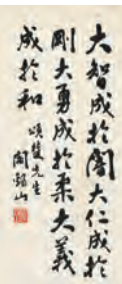 大智成於闇大仁成於
剛大勇成於柔大義
成於和
頌雙先生
閻錫山